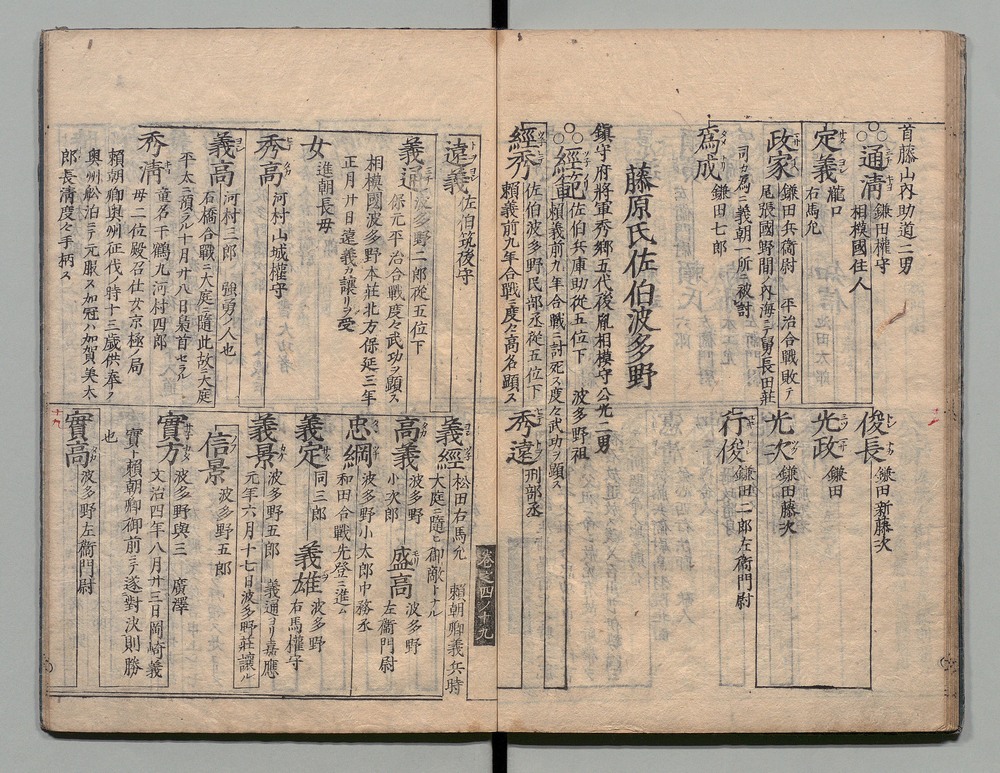 首藤山内助道二男
通清 鎌田權守
相模國住人
定義 瀧口
右馬允
政家 鎌田兵衞尉 平治合戰敗テ
尾張國野間ノ内海ニテ舅長田莊
司カ為ニ義朝一所ニ被討
為成 鎌田七郎
俊長 鎌田新藤次
光政 鎌田
光次 鎌田藤次
行俊 鎌田二郎左衞門尉
藤原氏佐伯波多野
鎮守府將軍秀郷五代後胤相模守公光二男
經範 佐伯兵庫助從五位下 波多野祖
頼義前九年合戰ニ討死ス度々武功ヲ顕ス
經秀 佐伯波多野民部丞從五位下
頼義前九年合戰ニ度々高名顕ス
秀遠 刑部丞
卷之四ノ十九
遠義 佐伯筑後守
義通 波多野二郎從五位下
保元平治合戰度々武功ヲ顕ス
相模國波多野本莊北方保延三年
正月廿日遠義カ讓リヲ受
女 進朝長母
秀高 河村山城權守
義高 河村三郎 強勇ノ人也
石橋合戰ニ大庭ニ隨此故ニ大庭
平太ニ預ラル十月廿八日梟首セラル
秀清 童名千鶴丸河村四郎
母二位殿召仕女京極ノ局
頼朝卿奥州征伐ノ時十三歳供奉ス
奥州舩泊ニテ元服ス加冠ハ加賀美太
郎長清度々手柄ス
義經 松田右馬允 頼朝卿義兵時
大庭ニ隨ヒ御敵トナル
高義 波多野
小次郎
盛高 波多野
左衞門尉
忠綱 波多野小太郎中務丞
和田合戰先登ニ進ム
義定 同三郎
義雄 波多野
右馬權守
義景 波多野五郎 義通ヨリ嘉應
元年六月十七日波多野莊讓ル
信景 波多野五郎
實方 波多野與三 廣澤
文治四年八月廿三日岡崎義
實ト頼朝卿御前ニテ遂對決則勝
也
實高 波多野左衞門尉